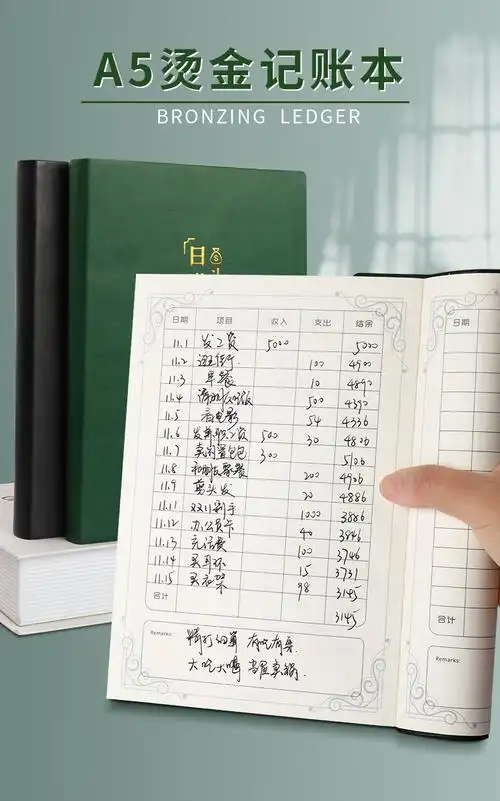 A5烫金记账本
BRONZING LEDGER
日
日期 项目 收入 支出 结余 日期
11.1 发工资 5000 5000
11.2 逛街 100 4900
11.3 早餐 10 4890
11.4 500 4390
11.5 看电影 54 4336
11.6 发兼职工资 500 30 4806
11.7 卖闲置包包 300 5106
11.8 200 4906
11.9 剪头发 20 4886
11.11 双11剁手 1000 3886
11.12 办公交卡 40 3846
11.13 充话费 100 3746
11.14 买耳环 15 3731
11.15 买衣架 98 3145
合计 3145 合计
Remarks: 精打细算 有吃有穿 Remarks:
大吃大喝 当屋卖锅